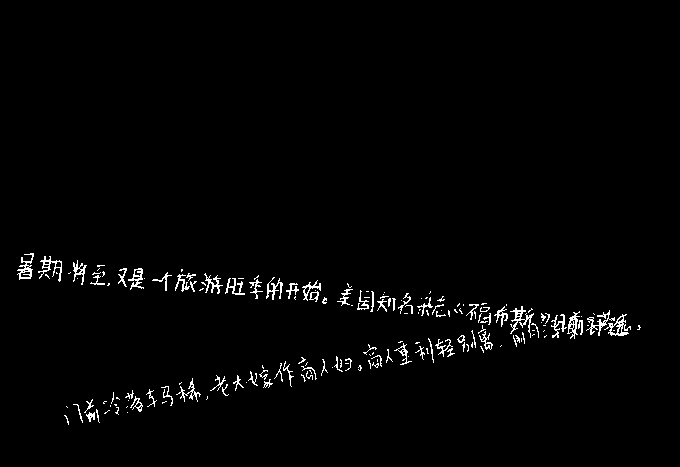 暑期将至,又是一个旅游旺季的开始。美国知名杂志《福布斯》日前评选。
门前冷落车马稀,老大嫁作商人妇。商人重利轻别离,前月